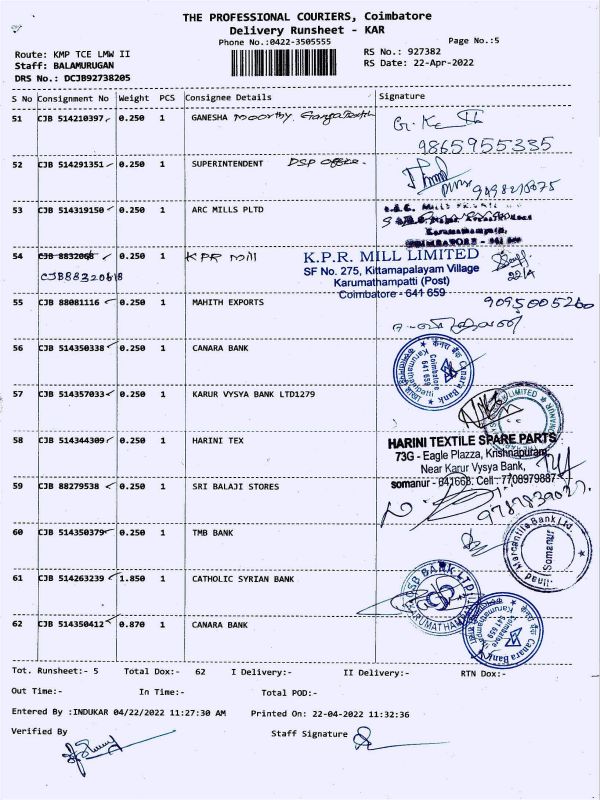 THE PROFESSIONAL COURIERS, Coimbatore
Delivery Runsheet - KAR
Phone No.:0422-3505555
Page No.:5
Route: KMP TCE LMW II
RS No.: 927382
Staff: BALAMURUGAN
RS Date: 22-Apr-2022
DRS No.: DCJB92738205
S No Consignment No Weight PCS Consignee Details Signature
51 CJB 514210397 0.250 1 GANESHA moorthy
9865955335
52 CJB 514291351 0.250 1 SUPERINTENDENT DSP office.
53 CJB 514319150 0.250 1 ARC MILLS PLTD
Karumathampatti,
COIMBATORE - 641 659
54 CJB 8832068 0.250 1 KPR mill
CJB88320618
K.P.R. MILL LIMITED
SF No. 275, Kittamapalayam Village
Karumathampatti (Post)
Coimbatore - 641 659
22/4
55 CJB 88081116 0.250 1 MAHITH EXPORTS
9095005260
56 CJB 514350338 0.250 1 CANARA BANK
केनरा बैंक Canara Bank
Karumathampatti
Coimbatore
641 659
57 CJB 514357033 0.250 1 KARUR VYSYA BANK LTD1279
LIMITED
58 CJB 514344309 0.250 1 HARINI TEX
HARINI TEXTILE SPARE PARTS
73G - Eagle Plazza, Krishnapuram,
Near Karur Vysya Bank,
somanur - 641668. Cell : 7708979887
59 CJB 88279538 0.250 1 SRI BALAJI STORES
60 CJB 514350379 0.250 1 TMB BANK
Mercantile Bank Ltd.
Somanur
61 CJB 514263239 1.850 1 CATHOLIC SYRIAN BANK
CSB BANK LTD
KARUMATHAM
62 CJB 514350412 0.870 1 CANARA BANK
केनरा बैंक Canara Bank
Coimbatore
641 659
Tot. Runsheet:- 5 Total Dox:- 62 I Delivery:- II Delivery:- RTN Dox:-
Out Time:- In Time:- Total POD:-
Entered By :INDUKAR 04/22/2022 11:27:30 AM Printed On: 22-04-2022 11:32:36
Verified By Staff Signature